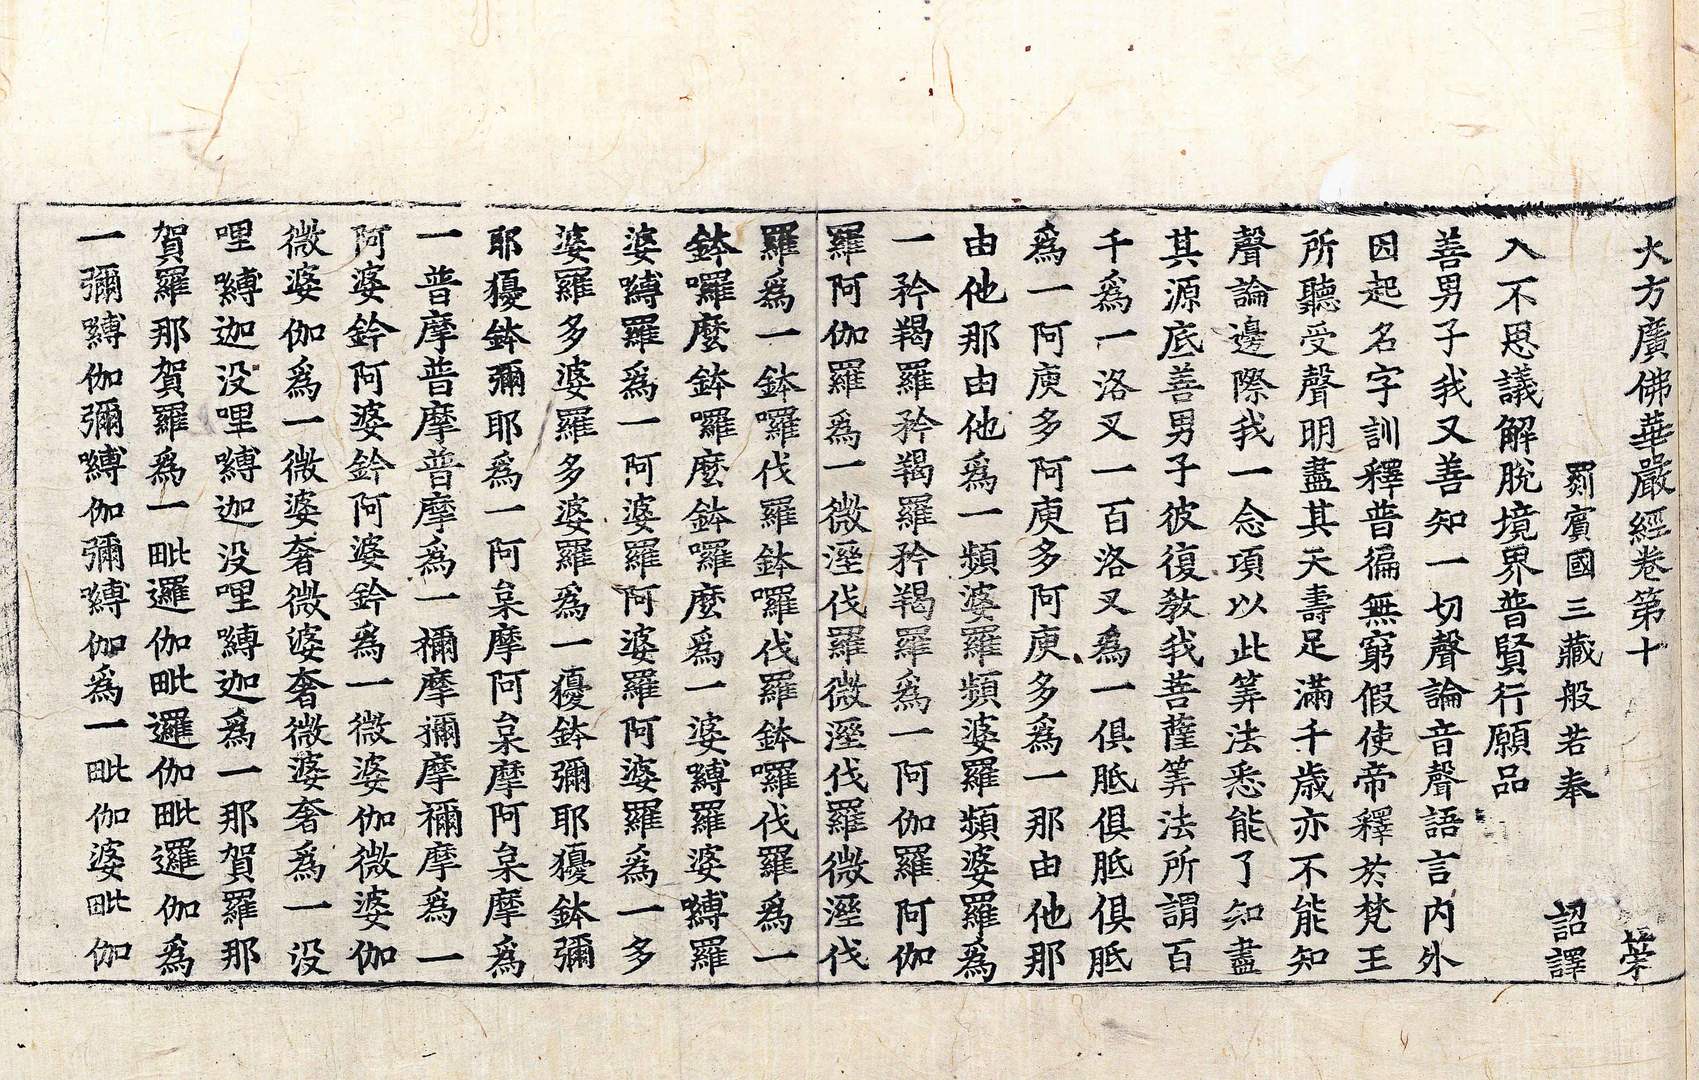 大方廣佛華嚴經卷第十
罽賓國三藏般若奉 詔譯
入不思議解脫境界普賢行願品
善男子我又善知一切聲論音聲語言內外
因起名字訓釋普徧無窮假使帝釋於梵王
所聽受聲明盡其天壽足滿千歲亦不能知
聲論邊際我一念項以此筭法悉能了知盡
其源底善男子彼復教我菩薩筭法所謂百
千為一洛叉一百洛叉為一俱胝俱胝俱胝
為一阿庾多阿庾多阿庾多為一那由他那
由他那由他為一頻婆羅頻婆羅頻婆羅為
一矜羯羅矜羯羅矜羯羅為一阿伽羅阿伽
羅阿伽羅為一微溼伐羅微溼伐羅微溼伐
羅為一鉢囉伐羅鉢囉伐羅鉢囉伐羅為一
鉢囉麼鉢囉麼鉢囉麼為一婆嚩羅婆嚩羅
婆嚩羅為一阿婆羅阿婆羅阿婆羅為一多
婆羅多婆羅多婆羅為一擾鉢彌耶擾鉢彌
耶擾鉢彌耶為一阿枲摩阿枲摩阿枲摩為
一普摩普摩普摩為一禰摩禰摩禰摩為一
阿婆鈐阿婆鈐阿婆鈐為一微婆伽微婆伽
微婆伽為一微婆奢微婆奢微婆奢為一沒
哩嚩迦沒哩嚩迦沒哩嚩迦為一那賀羅那
賀羅那賀羅為一毗邏伽毗邏伽毗邏伽為
一彌嚩伽彌嚩伽彌嚩伽為一毗伽婆毗伽